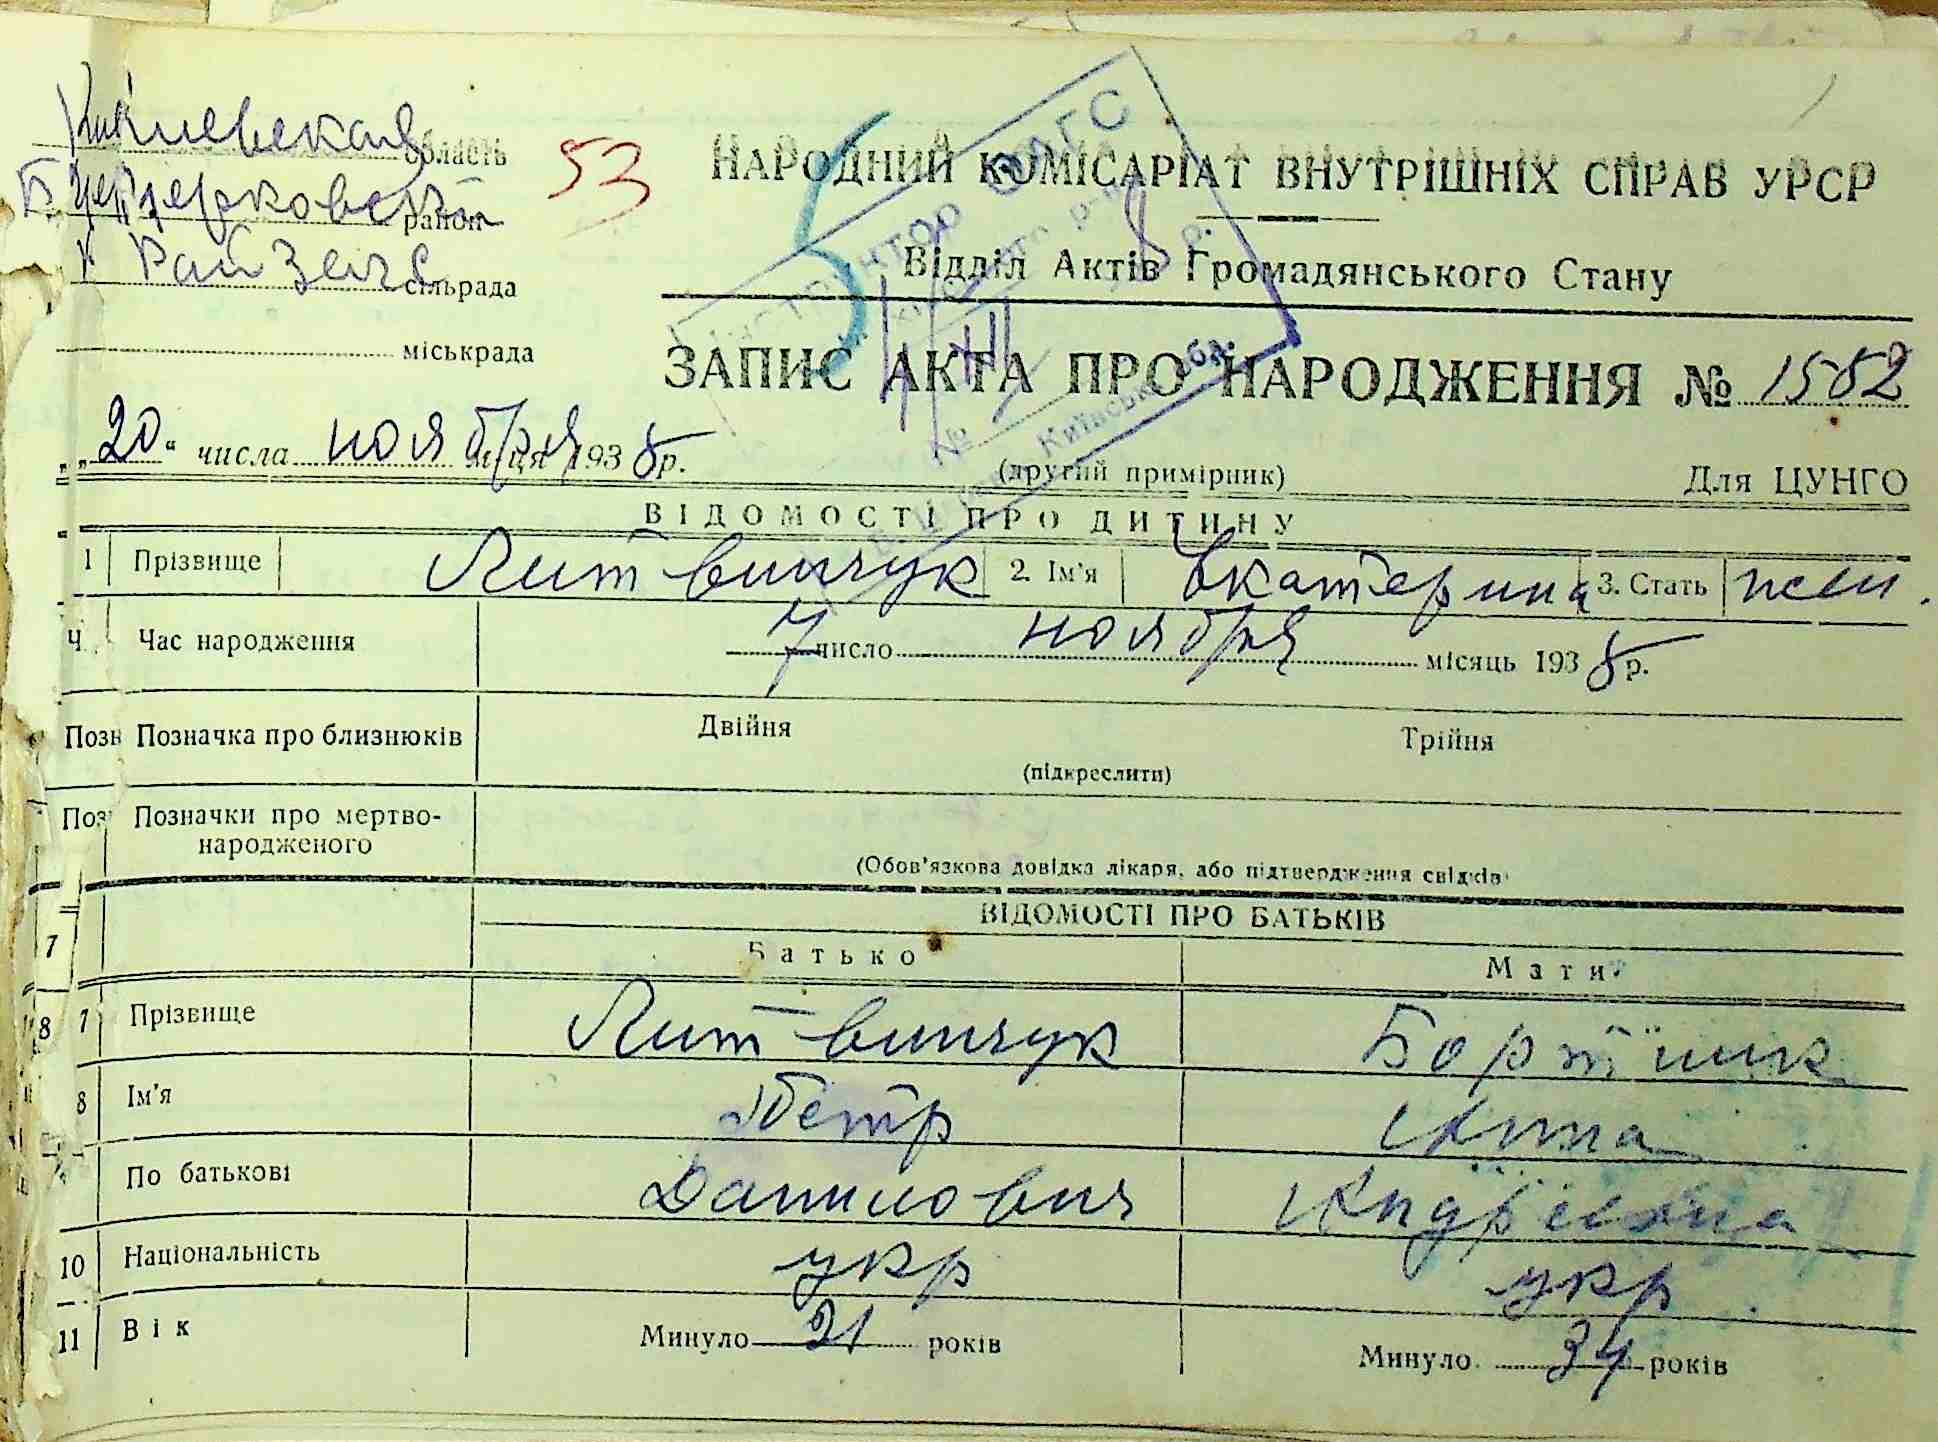 Киевская область
Б Церковский район
сільрада
міськрада
53
НАРОДНИЙ КОМІСАРІАТ ВНУТРІШНІХ СПРАВ УРСР
Відділ Актів Громадянського Стану
ЗАПИС АКТА ПРО НАРОДЖЕННЯ № 1582
„20“ числа ноября м-ця 1938 р.
(другий примірник)
Для ЦУНГО
ВІДОМОСТІ ПРО ДИТИНУ
1 Прізвище Литвинчук 2. Ім'я Екатерина 3. Стать жен.
Ч. Час народження 7 число ноября місяць 1938 р.
Позн Позначка про близнюків Двійня Трійня
(підкреслити)
Поз Позначки про мертво-
народженого
(Обов'язкова довідка лікаря, або підтвердження свідків
ВІДОМОСТІ ПРО БАТЬКІВ
7
Батько Мати
8 7 Прізвище Литвинчук Бортник
8 Ім'я Петр Анна
По батькові Данилович Андреевна
10 Національність укр укр
11 Вік Минуло 21 років Минуло 34 років